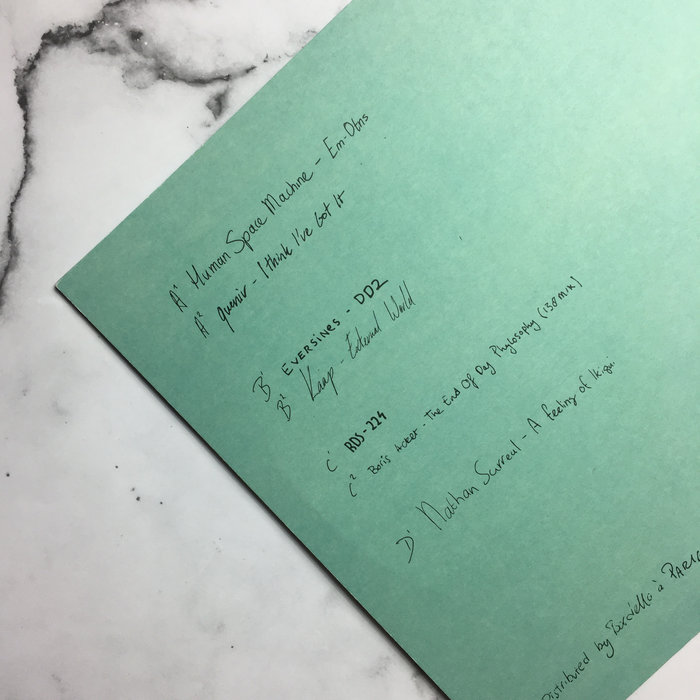 A1 Human Space Machine - Em-Otns
A2 quenir - I think I've Got It
B1 EVERSINES - DD2
B2 Kaap - External World
C1 BDS-224
C2 Boris Acket - The End Of Day Phylosophy (130 mix)
D1 Nathan Surreal - A feeling of Ikigai
Distributed by Bordello à PARIS